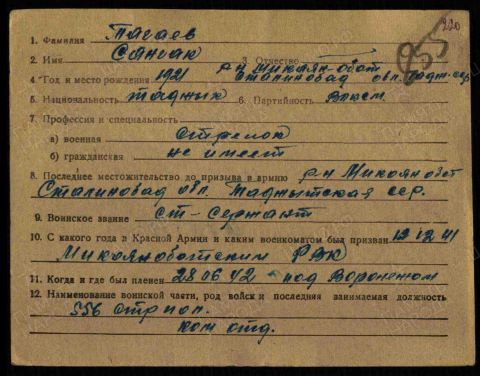 220
855
1. Фамилия Пагаев
2. Имя Сангак 3. Отчество —
р-н Микоян-обот
4. Год и место рождения 1921 Сталинобад обл. Тадж. сср
5. Национальность таджык 6. Партийность Влксм.
7. Профессия и специальность
а) военная стрелок
б) гражданская не имеет
8. Последнее местожительство до призыва в армию р-н Микоянобот
Сталинобад обл. Таджыкская сср.
9. Воинское звание ст-сержант
10. С какого года в Красной Армии и каким военкоматом был призван 12 12 41
Микояноботским РВК
11. Когда и где был пленен 28 06 42 под Воронежом
12. Наименование воинской части, род войск и последняя занимаемая должность
556 стр пол.
ком отд.